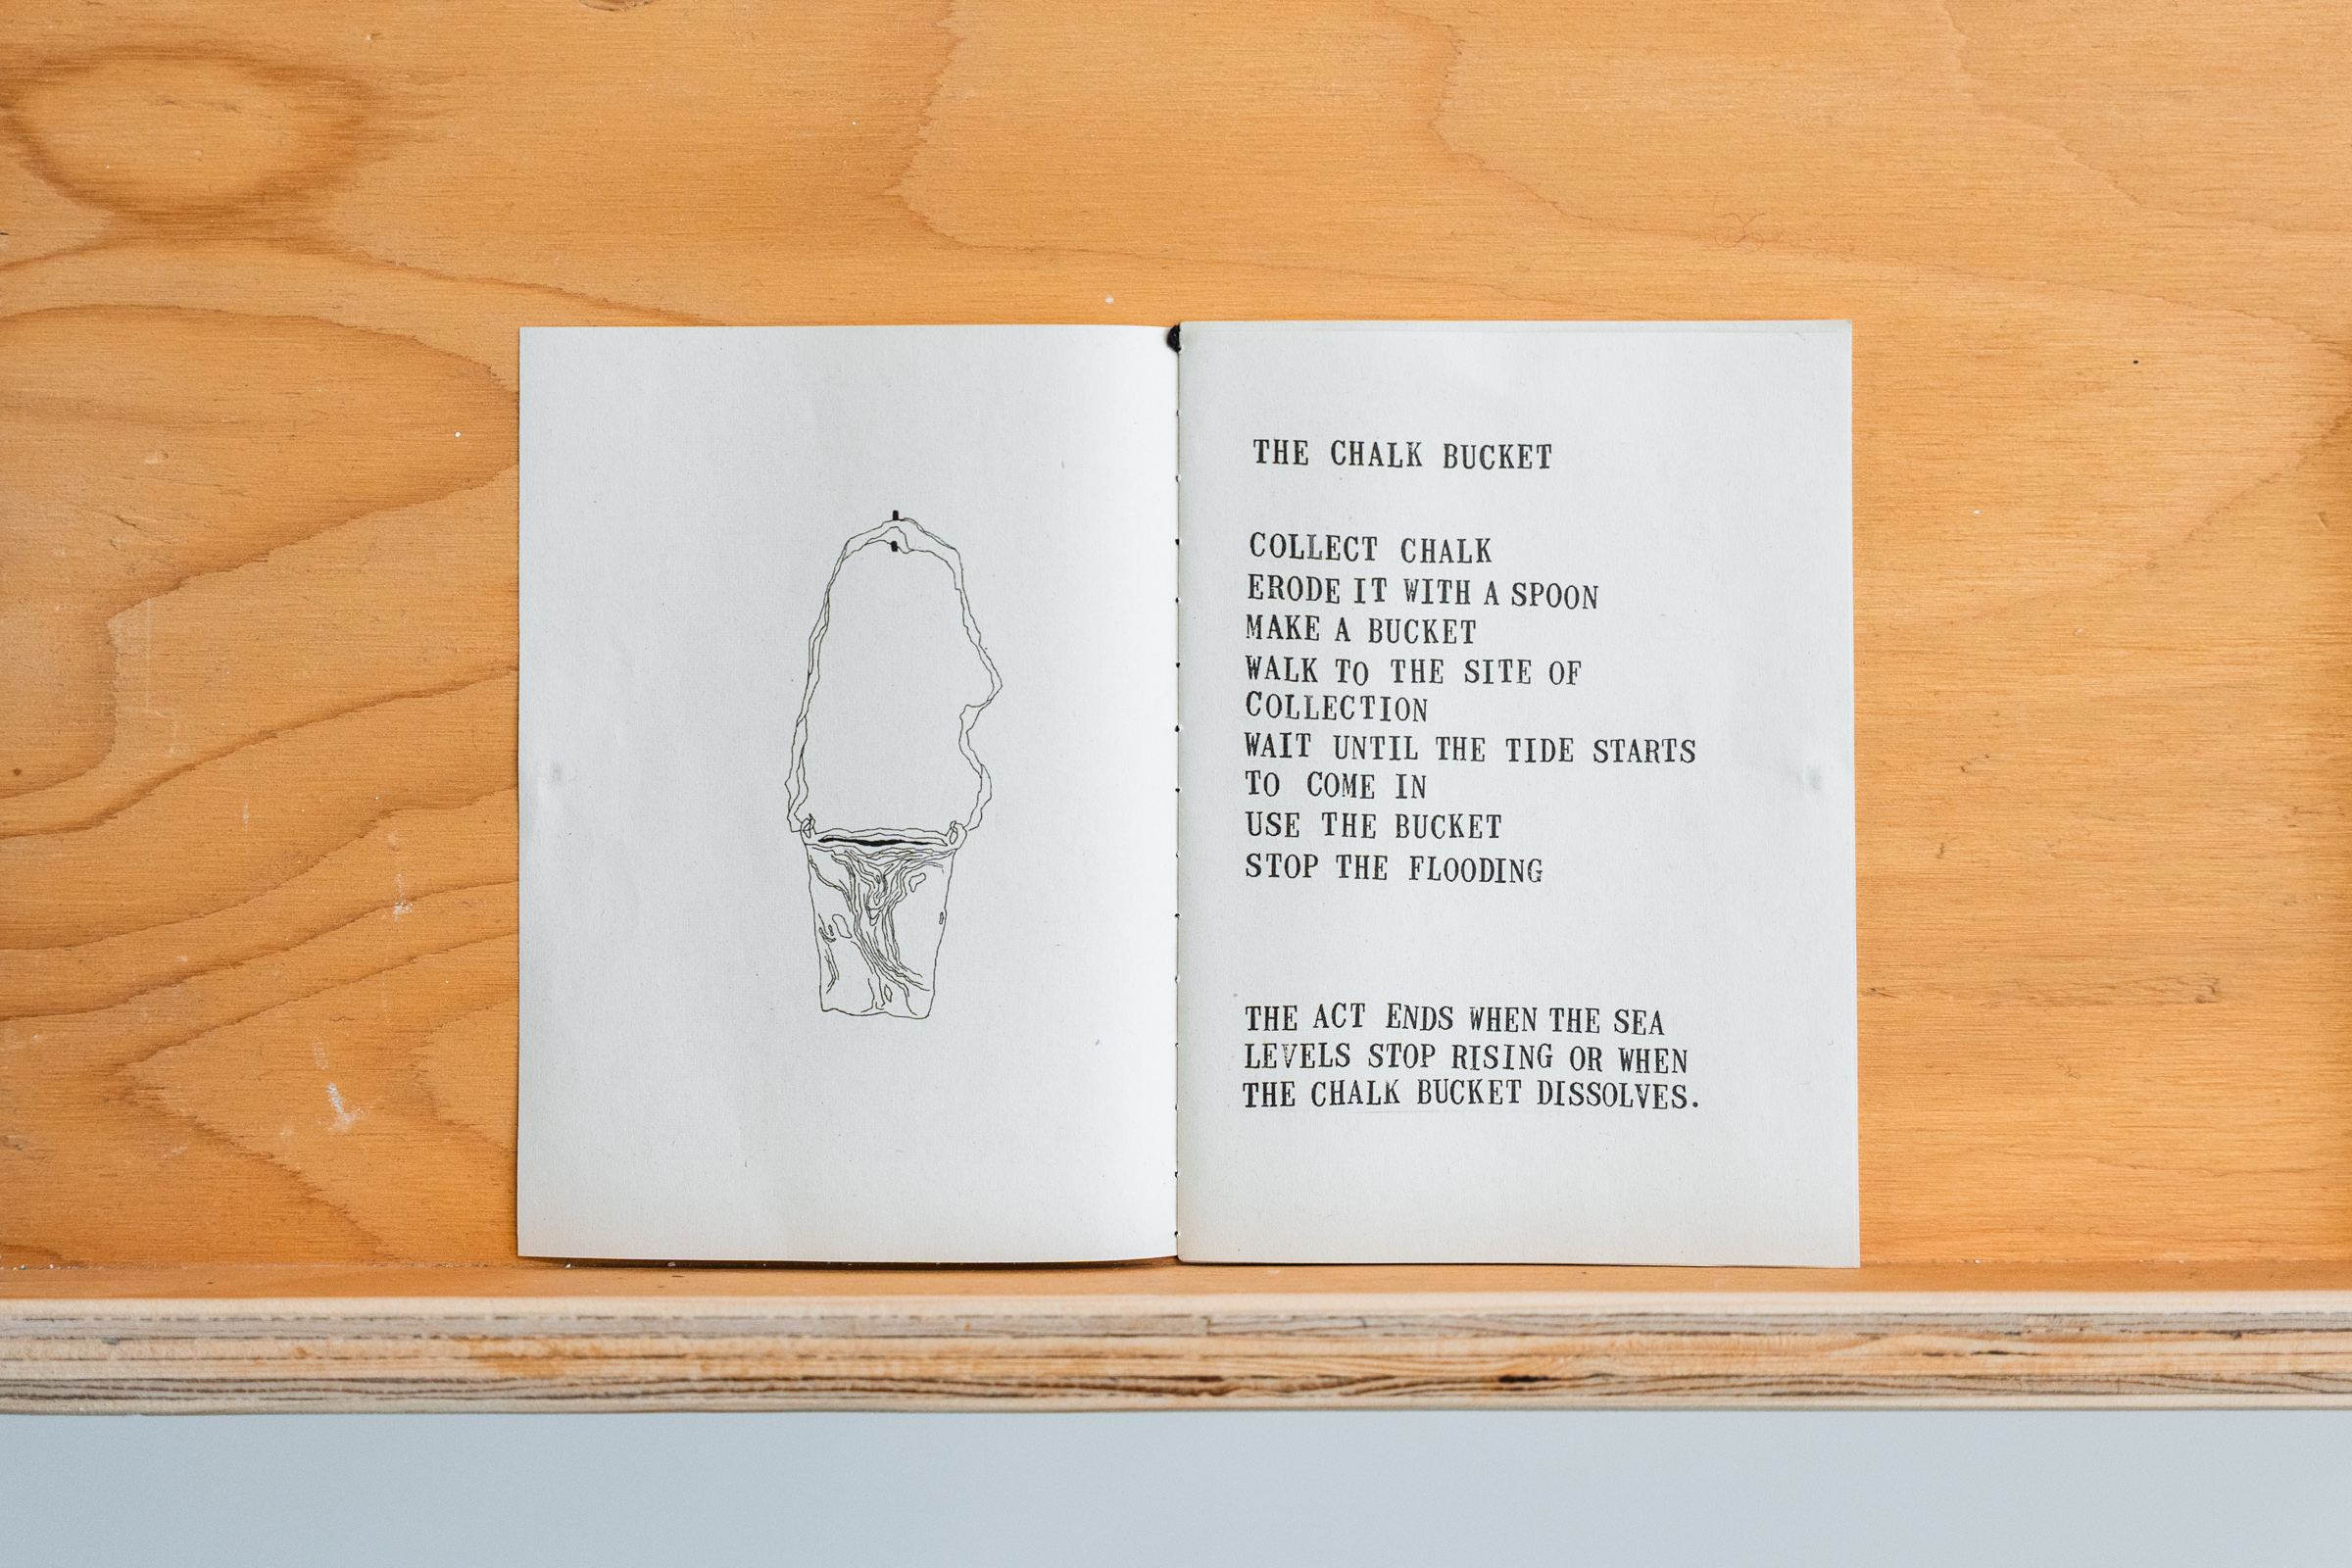 THE CHALK BUCKET
COLLECT CHALK
ERODE IT WITH A SPOON
MAKE A BUCKET
WALK TO THE SITE OF
COLLECTION
WAIT UNTIL THE TIDE STARTS
TO COME IN
USE THE BUCKET
STOP THE FLOODING
THE ACT ENDS WHEN THE SEA
LEVELS STOP RISING OR WHEN
THE CHALK BUCKET DISSOLVES.